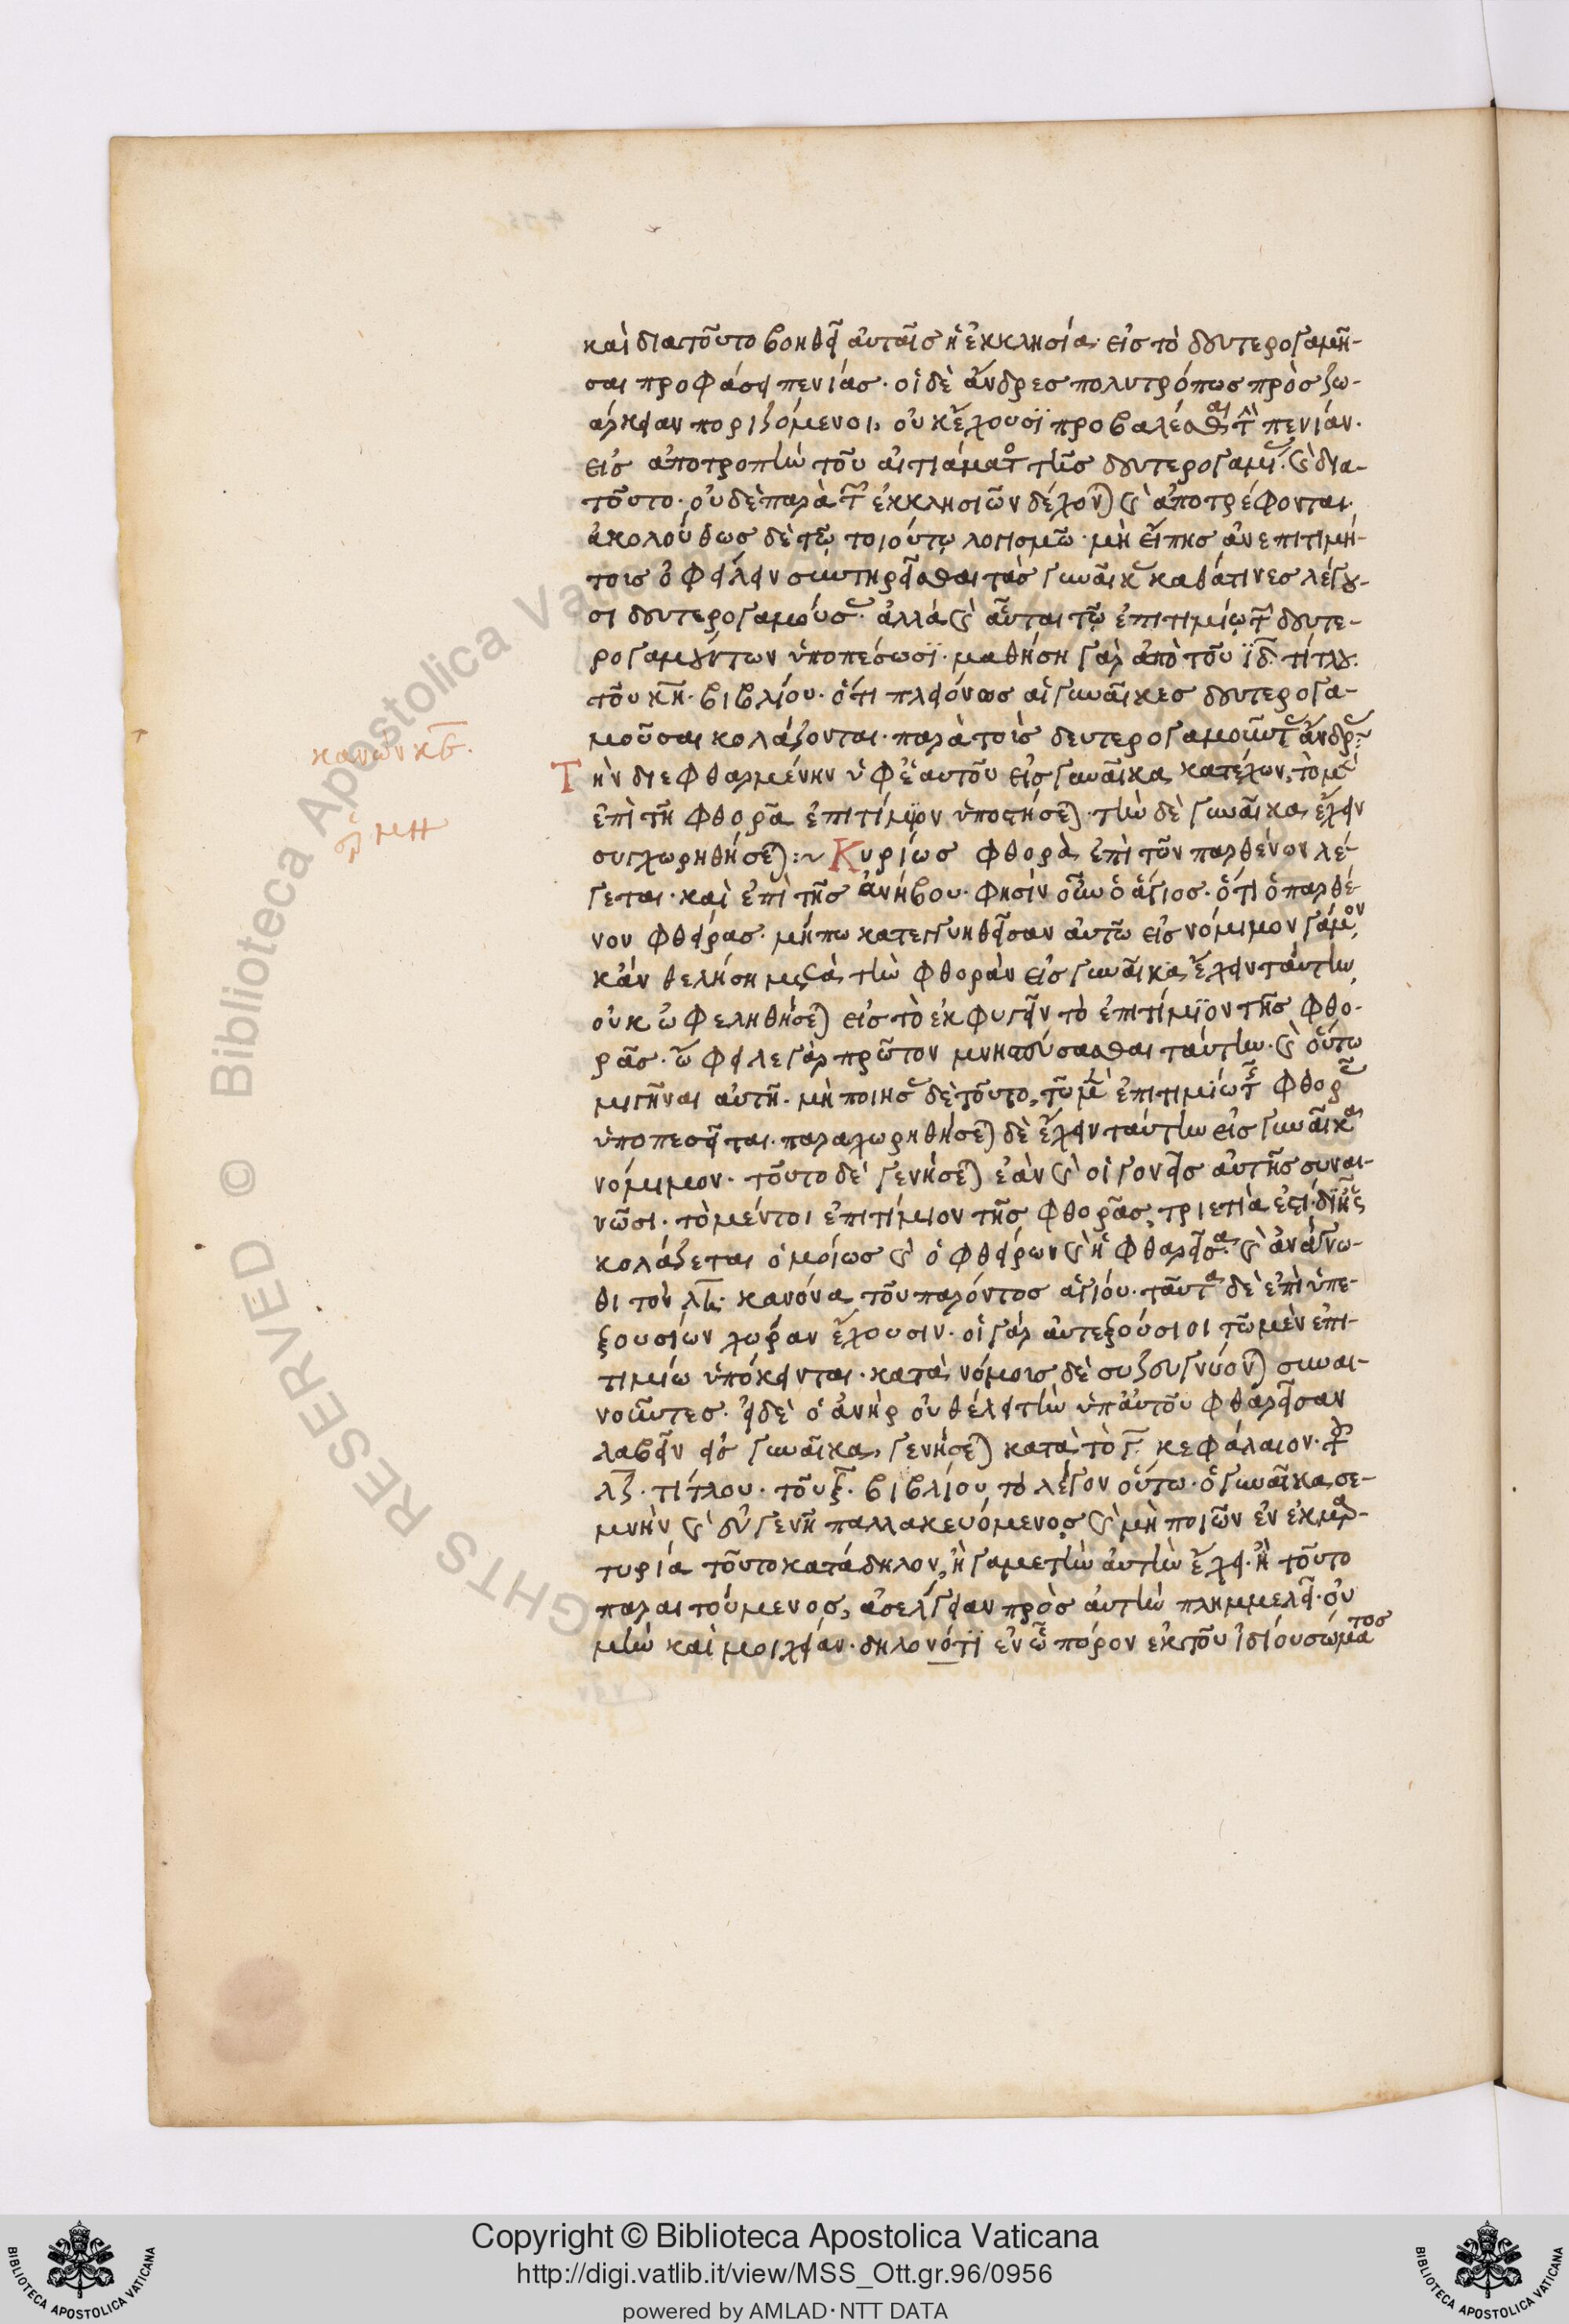 καὶ διατοῦτο βοηθεῖ αὐταῖσ ἡ ἐκκλησία· εἰσ τὸ δευτερογαμῆ-
σαι προφάσει πενίασ· οἱ δὲ ἄνδρεσ πολυτρόπωσ πρὸσ ζω-
άρκειαν ποριζόμενοι, οὐκ ἔχουσϊ προβαλέσθαι τὴν πενίαν·
εἰσ ἀποτροπὴν τοῦ αἰτιάματοσ τῆσ δευτερογαμίασ· καὶ δια-
τοῦτο· οὐδὲ παρὰ τῶν ἐκκλησιῶν δέχονται καὶ ἀποτρέφονται·
ἀκολούθωσ δὲ τῶ τοιούτω λογισμῶ· μὴ εἴπησ ἀνεπιτιμή-
τουσ ὀφείλειν συντηρεῖσθαι τὰσ γυναῖκασ καθάτινεσ λέγου-
σι δευτερογαμούσασ· ἀλλὰ καὶ αὗται τῶ ἐπιτιμίω τῶν δευτε-
ρογαμούντων ὑποπέσωσϊ· μαθήση γὰρ ἀπὸ τοῦ ϊδ· τίτλου·
τοῦ κη· βιβλίου· ὅτι πλειόνωσ αἱ γυναῖκεσ δευτερογα-
μοῦσαι κολάζονται· παρὰ τοὺσ δευτερογαμοῦντασ ἄνδρασ·
κανών κβ·
Τὴν διεφθαρμένην ὑφἑαυτοῦ εἰσ γυναῖκα κατέχων, τὸ μὲν
ἐπὶ τῆ φθορᾶ ἐπιτίμϊον ὑποστήσεται· τὴν δὲ γυναῖκα ἔχειν
συγχωρηθήσεται:~ Κυρίωσ φθορὰ ἐπὶ τῶν παρθένον λέ-
γεται· καὶ ἐπὶ τῆσ ἀνήβου· φησὶν οὖν ὁ ἅγιοσ· ὅτι ὁ παρθέ-
νον φθείρασ· μήπω κατεγγυηθεῖσαν αὐτῶ εἰσ νόμιμον γάμον,
κἂν θελήση μετὰ τὴν φθορὰν εἰσ γυναῖκα ἔχειν ταύτην,
οὐκ ὠφεληθήσεται εἰσ τὸ ἐκφυγεῖν τὸ ἐπιτίμϊον τῆσ φθο-
ρᾶσ· ὤφειλε γὰρ πρῶτον μνηστεύσασθαι ταύτην· καὶ οὕτω
μιγῆναι αὐτῆ· μὴ ποιήσασ δὲ τοῦτο, τῶ μὲν ἐπιτιμίω τῆσ φθορᾶσ
ὑποπεσεῖται· παραχωρηθήσεται δὲ ἔχειν ταύτην εἰσ γυναῖκα
νόμιμον· τοῦτο δὲ γενήσεται ἐὰν καὶ οἱ γονεῖσ αὐτῆσ συναι-
νῶσι· τὸ μέντοι ἐπιτίμιον τῆσ φθορᾶσ, τριετία ἐστί·
κολάζεται ὁμοίωσ καὶ ὁ φθείρων καὶ ἡ φθαρεῖσα· καὶ ἀνάγνω-
θι τὸν κανόνα τοῦ παρόντοσ ἁγίου· ταῦτα δὲ ἐπὶ ὑπε-
ξουσίων χώραν ἔχουσιν· οἱ γὰρ αὐτεξούσιοι τῶ μὲν ἐπι-
τιμίω ὑπόκεινται· κατὰ νόμουσ δὲ συζευγνύονται συναι-
νοῦντεσ· εἰ δὲ ὁ ἀνὴρ οὐ θέλει τὴν ὑπ᾽αὐτοῦ φθαρεῖσαν
λαβεῖν εἰσ γυναῖκα, γενήσεται κατὰ τὸ γ· κεφάλαιον· τοῦ
λζ· τίτλου· τοῦ ξ· βιβλίου τὸ λέγον οὕτω· ὁ γυναῖκα σε-
μνὴν καὶ εὐγενῆ παλλακευόμενοσ καὶ μὴ ποιῶν ἐν ἐκμαρ-
τυρία τοῦτο κατάδηλον, ἢ γαμετὴν αὐτὴν ἔχει· ἢ τοῦτο
παραιτούμενοσ, ἀσέλγειαν πρὸσ αὐτὴν πλημμελεῖ· οὐ
μὴν καὶ μοιχείαν· δηλονότϊ ἐν ὧ πόρον ἐκ τοῦ ἰδίου σώματοσ
Copyright © Biblioteca Apostolica Vaticana
http://digi.vatlib.it/view/MSS_Ott.gr.96/0956
powered by AMLAD·NTT DATA
BIBLIOTECA APOSTOLICA VATICANA
BIBLIOTECA APOSTOLICA VATICANA